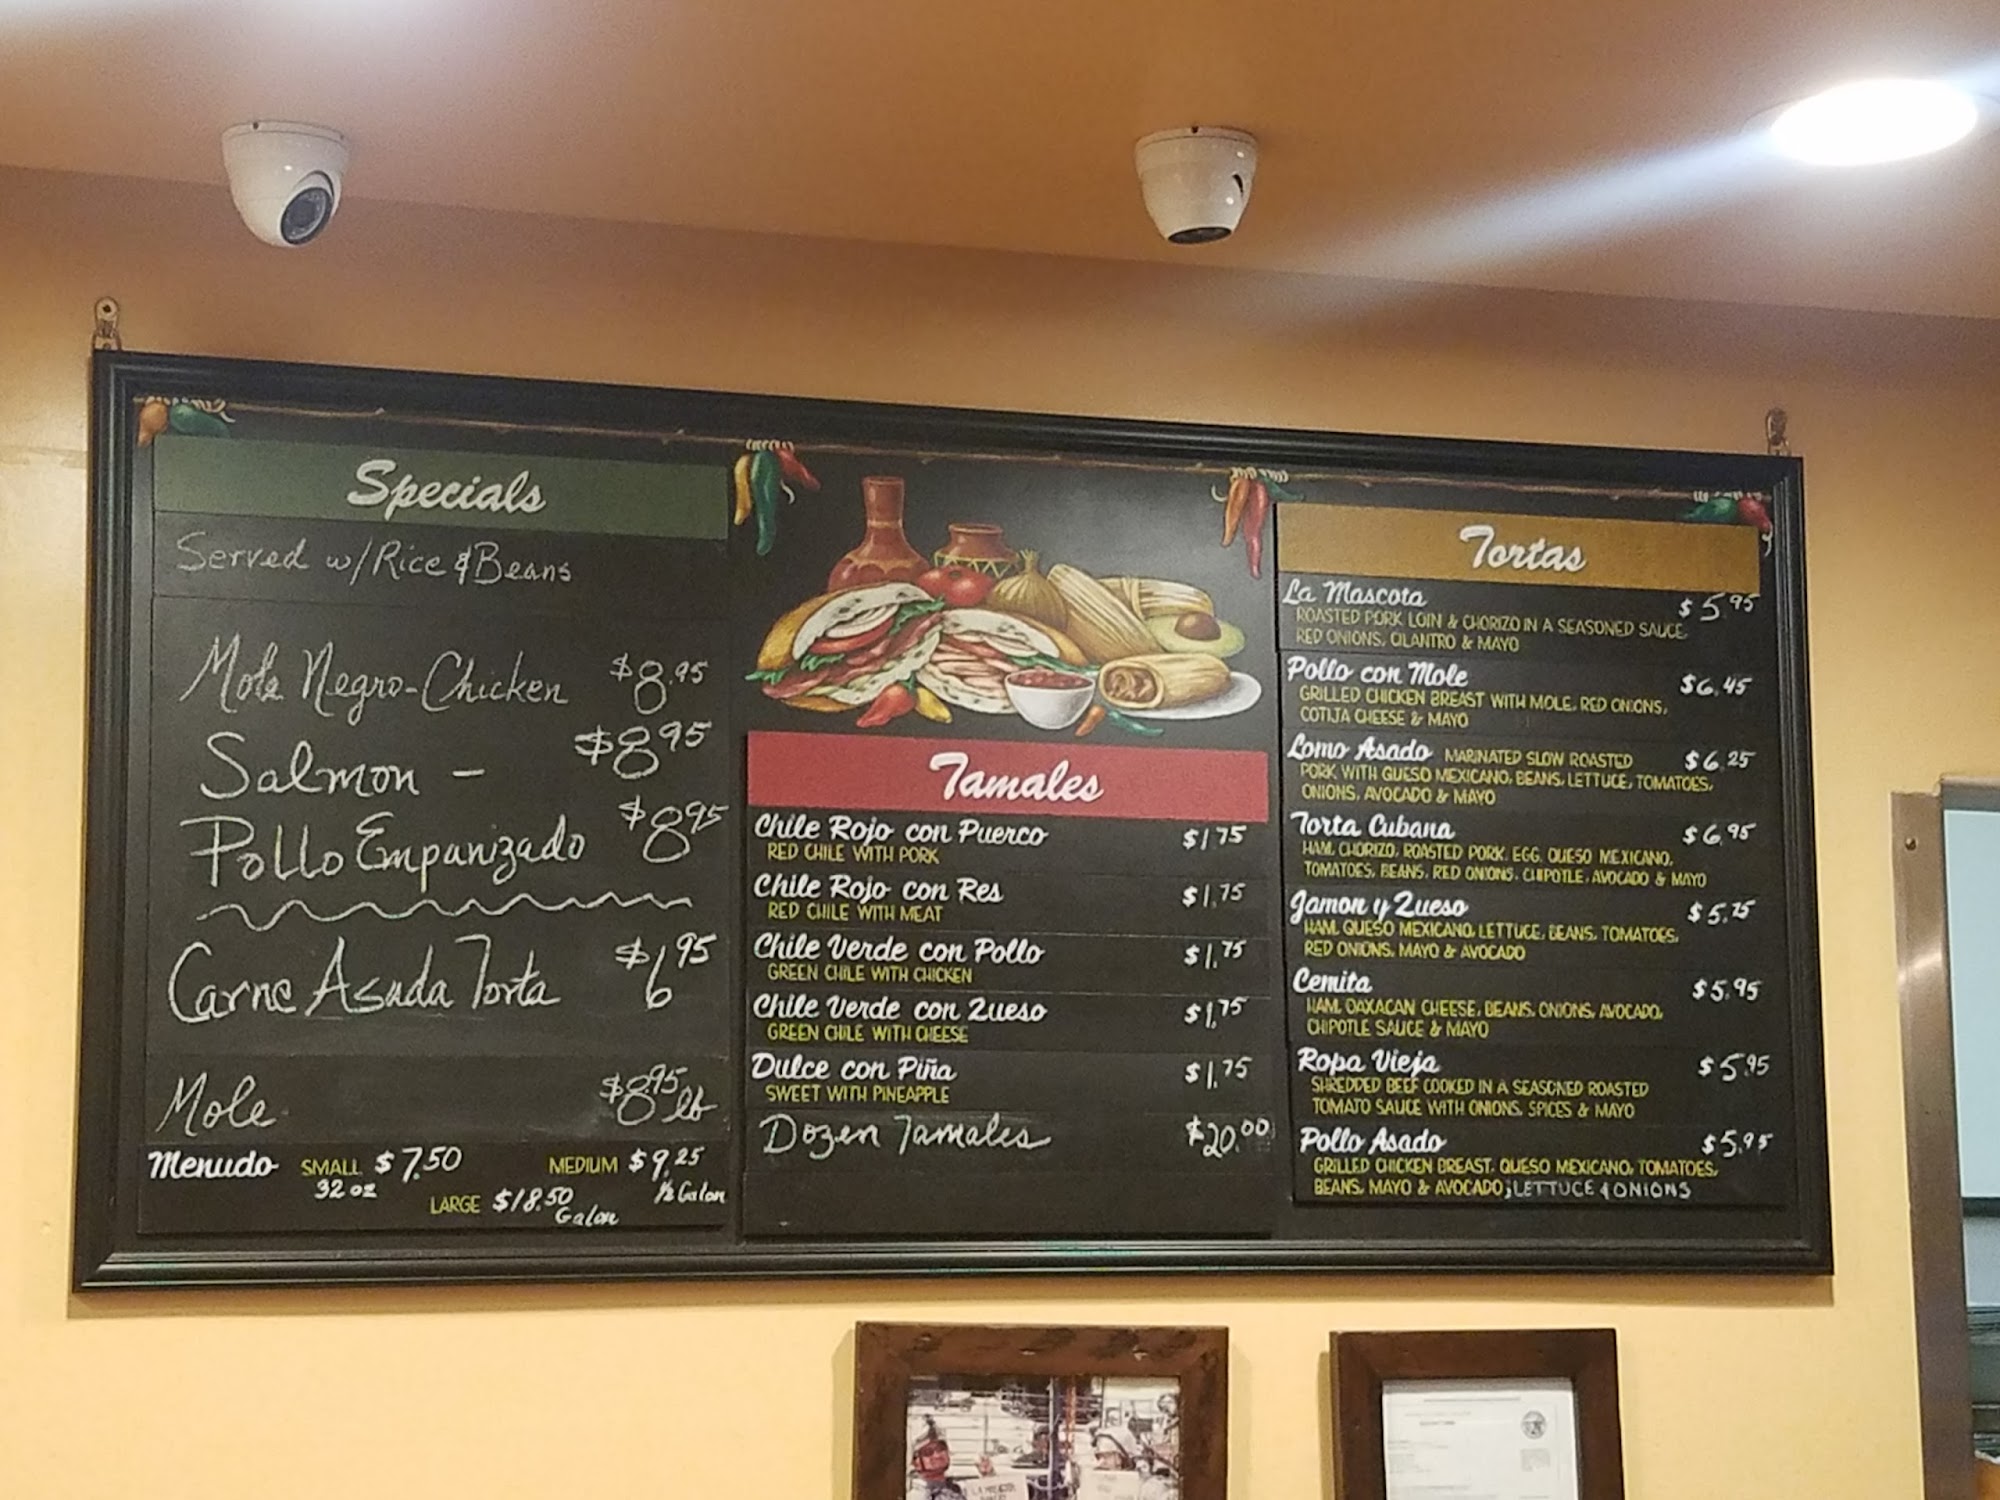 Specials
Served w/Rice & Beans
Mole Negro-Chicken $8.95
Salmon - $8.95
Pollo Empanizado $8.95
Carne Asada Torta $6.95
Mole $8.95 lb
Menudo SMALL $7.50 MEDIUM $9.25
32 oz 1/2 Galon
LARGE $18.50
Galon
Tamales
Chile Rojo con Puerco $1.75
RED CHILE WITH PORK
Chile Rojo con Res $1.75
RED CHILE WITH MEAT
Chile Verde con Pollo $1.75
GREEN CHILE WITH CHICKEN
Chile Verde con Queso $1.75
GREEN CHILE WITH CHEESE
Dulce con Piña $1.75
SWEET WITH PINEAPPLE
Dozen Tamales $20.00
Tortas
La Mascota $5.95
ROASTED PORK LOIN & CHORIZO IN A SEASONED SAUCE,
RED ONIONS, CILANTRO & MAYO
Pollo con Mole $6.45
GRILLED CHICKEN BREAST WITH MOLE, RED ONIONS,
COTIJA CHEESE & MAYO
Lomo Asado MARINATED SLOW ROASTED $6.25
PORK WITH QUESO MEXICANO, BEANS, LETTUCE, TOMATOES,
ONIONS, AVOCADO & MAYO
Torta Cubana $6.95
HAM, CHORIZO, ROASTED PORK, EGG, QUESO MEXICANO,
TOMATOES, BEANS, RED ONIONS, CHIPOTLE, AVOCADO & MAYO
Jamon y Queso $5.75
HAM, QUESO MEXICANO, LETTUCE, BEANS, TOMATOES,
RED ONIONS, MAYO & AVOCADO
Cemita $5.95
HAM, OAXACAN CHEESE, BEANS, ONIONS, AVOCADO,
CHIPOTLE SAUCE & MAYO
Ropa Vieja $5.95
SHREDDED BEEF COOKED IN A SEASONED ROASTED
TOMATO SAUCE WITH ONIONS, SPICES & MAYO
Pollo Asado $5.95
GRILLED CHICKEN BREAST, QUESO MEXICANO, TOMATOES,
BEANS, MAYO & AVOCADO, LETTUCE & ONIONS